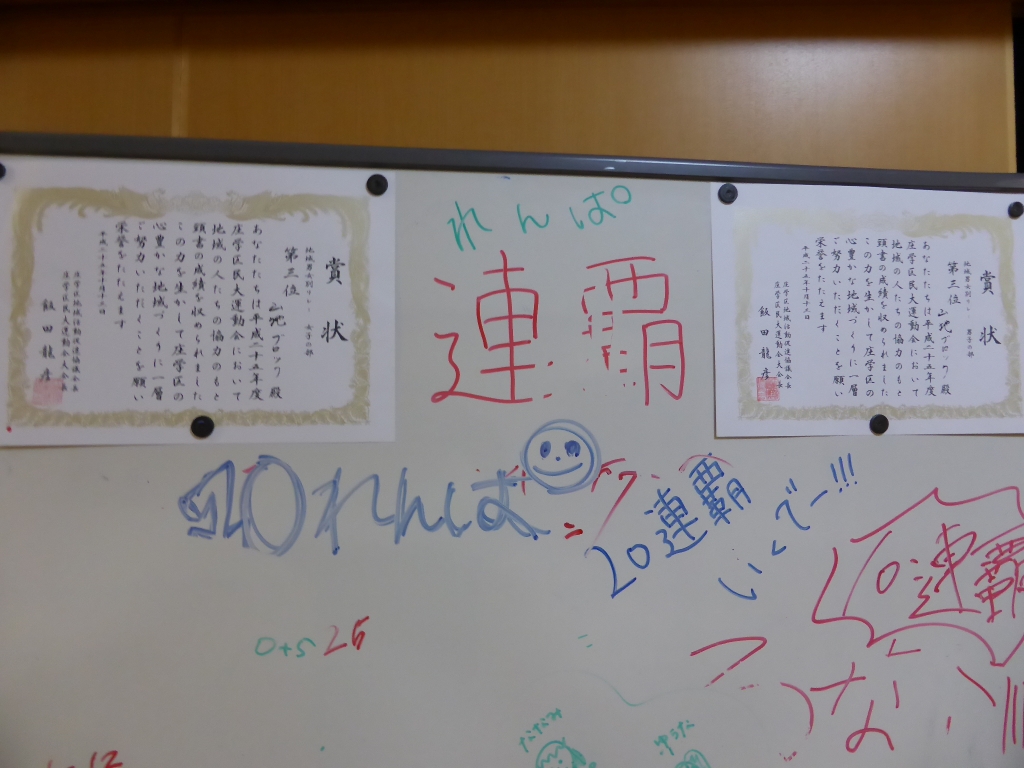 賞状
地域男女別リレー 女子の部
第三位 山地ブロック殿
あなたたちは平成二十五年度
庄学区民大運動会において
地域の人たちの協力のもと
頭書の成績を収められました
この力を生かして庄学区の
心豊かな地域づくりに一層
ご努力いただくことを願い
栄誉をたたえます
平成二十五年十月十三日
庄学区地域活動促進協議会会長
庄学区民大運動会大会長
飯田龍彦
れんぱ
連覇
賞状
地域男女別リレー 男子の部
第三位 山地ブロック殿
あなたたちは平成二十五年度
庄学区民大運動会において
地域の人たちの協力のもと
頭書の成績を収められました
この力を生かして庄学区の
心豊かな地域づくりに一層
ご努力いただくことを願い
栄誉をたたえます
平成二十五年十月十三日
庄学区地域活動促進協議会会長
庄学区民大運動会大会長
飯田龍彦
10れんぱ
20連覇
いくでー!!!
10連覇
つない
0+5 25
ななみ
ゆうな
12